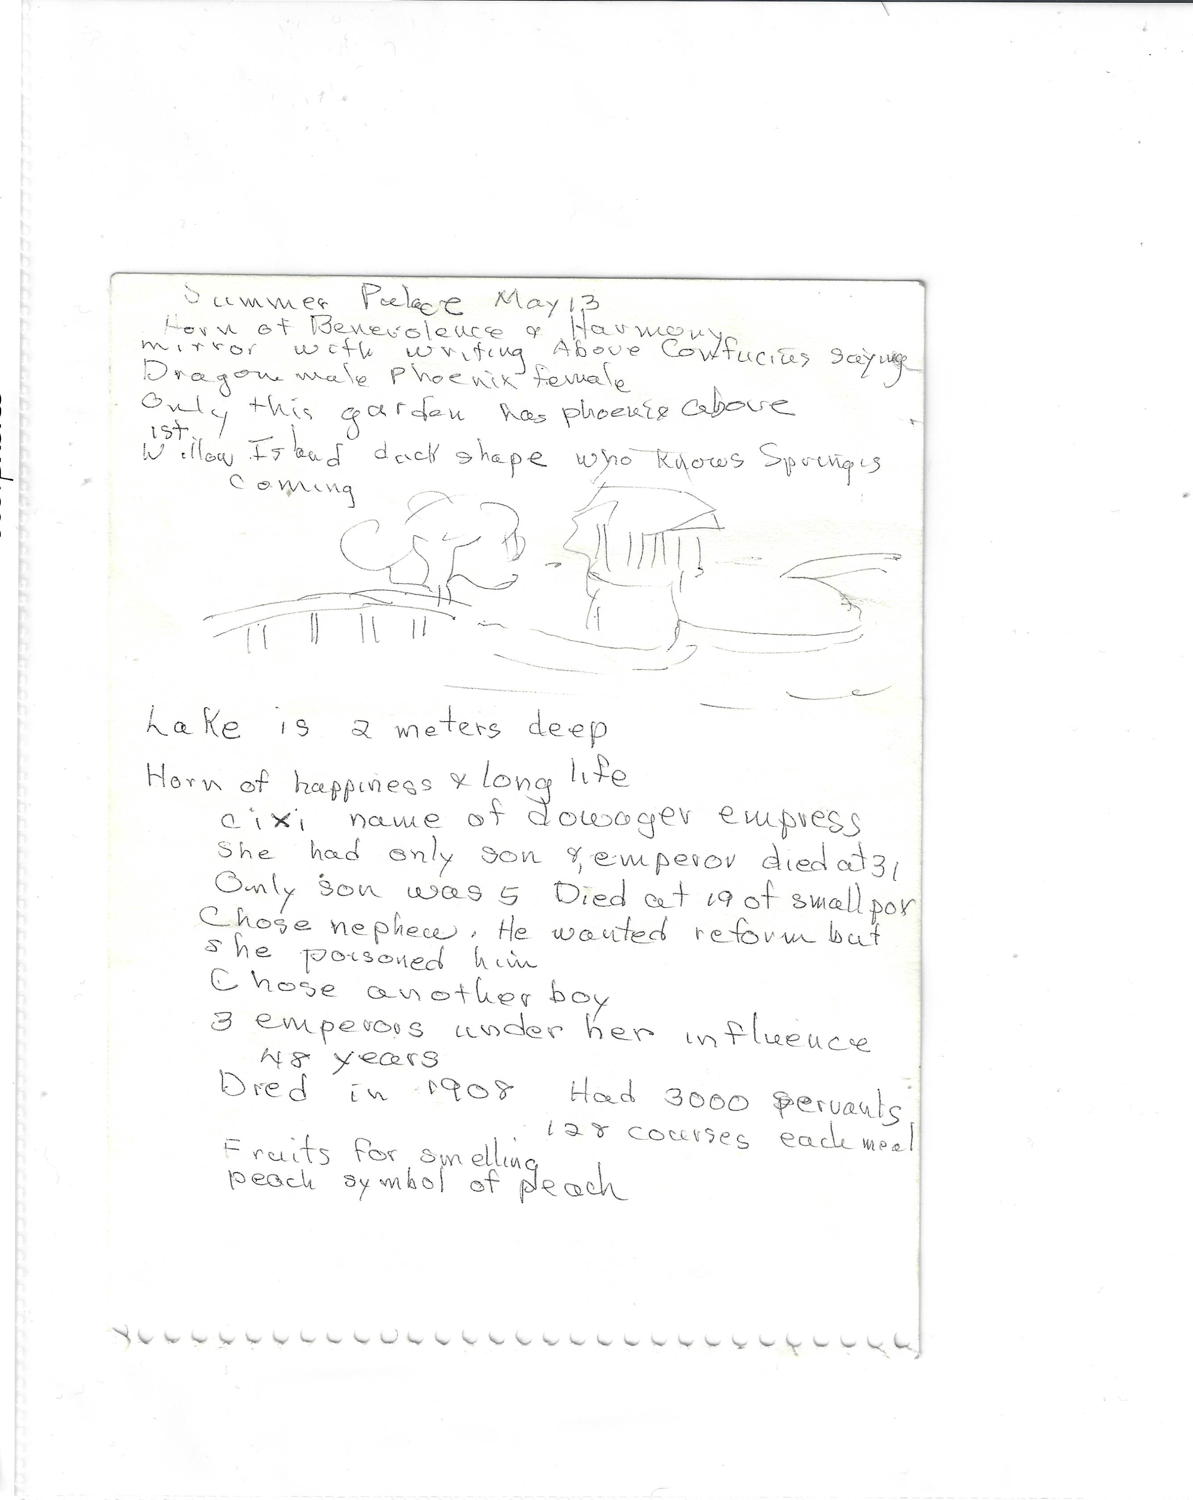 Summer Palace May 13
Horn of Benevolence & Harmony
mirror with writing Above Confucius saying
Dragon male Phoenix female
Only this garden has phoenix above
Willow Island duck shape who knows Spring is
1st
coming
Lake is 2 meters deep
Horn of happiness & long life
cixi name of dowager empress
She had only son & emperor died at 31
Only son was 5 Died at 19 of small pox
Chose nephew. He wanted reform but
she poisoned him
Chose another boy
3 emperors under her influence
48 years
Died in 1908 Had 3000 servants
128 courses each meal
Fruits for smelling
peach symbol of peach